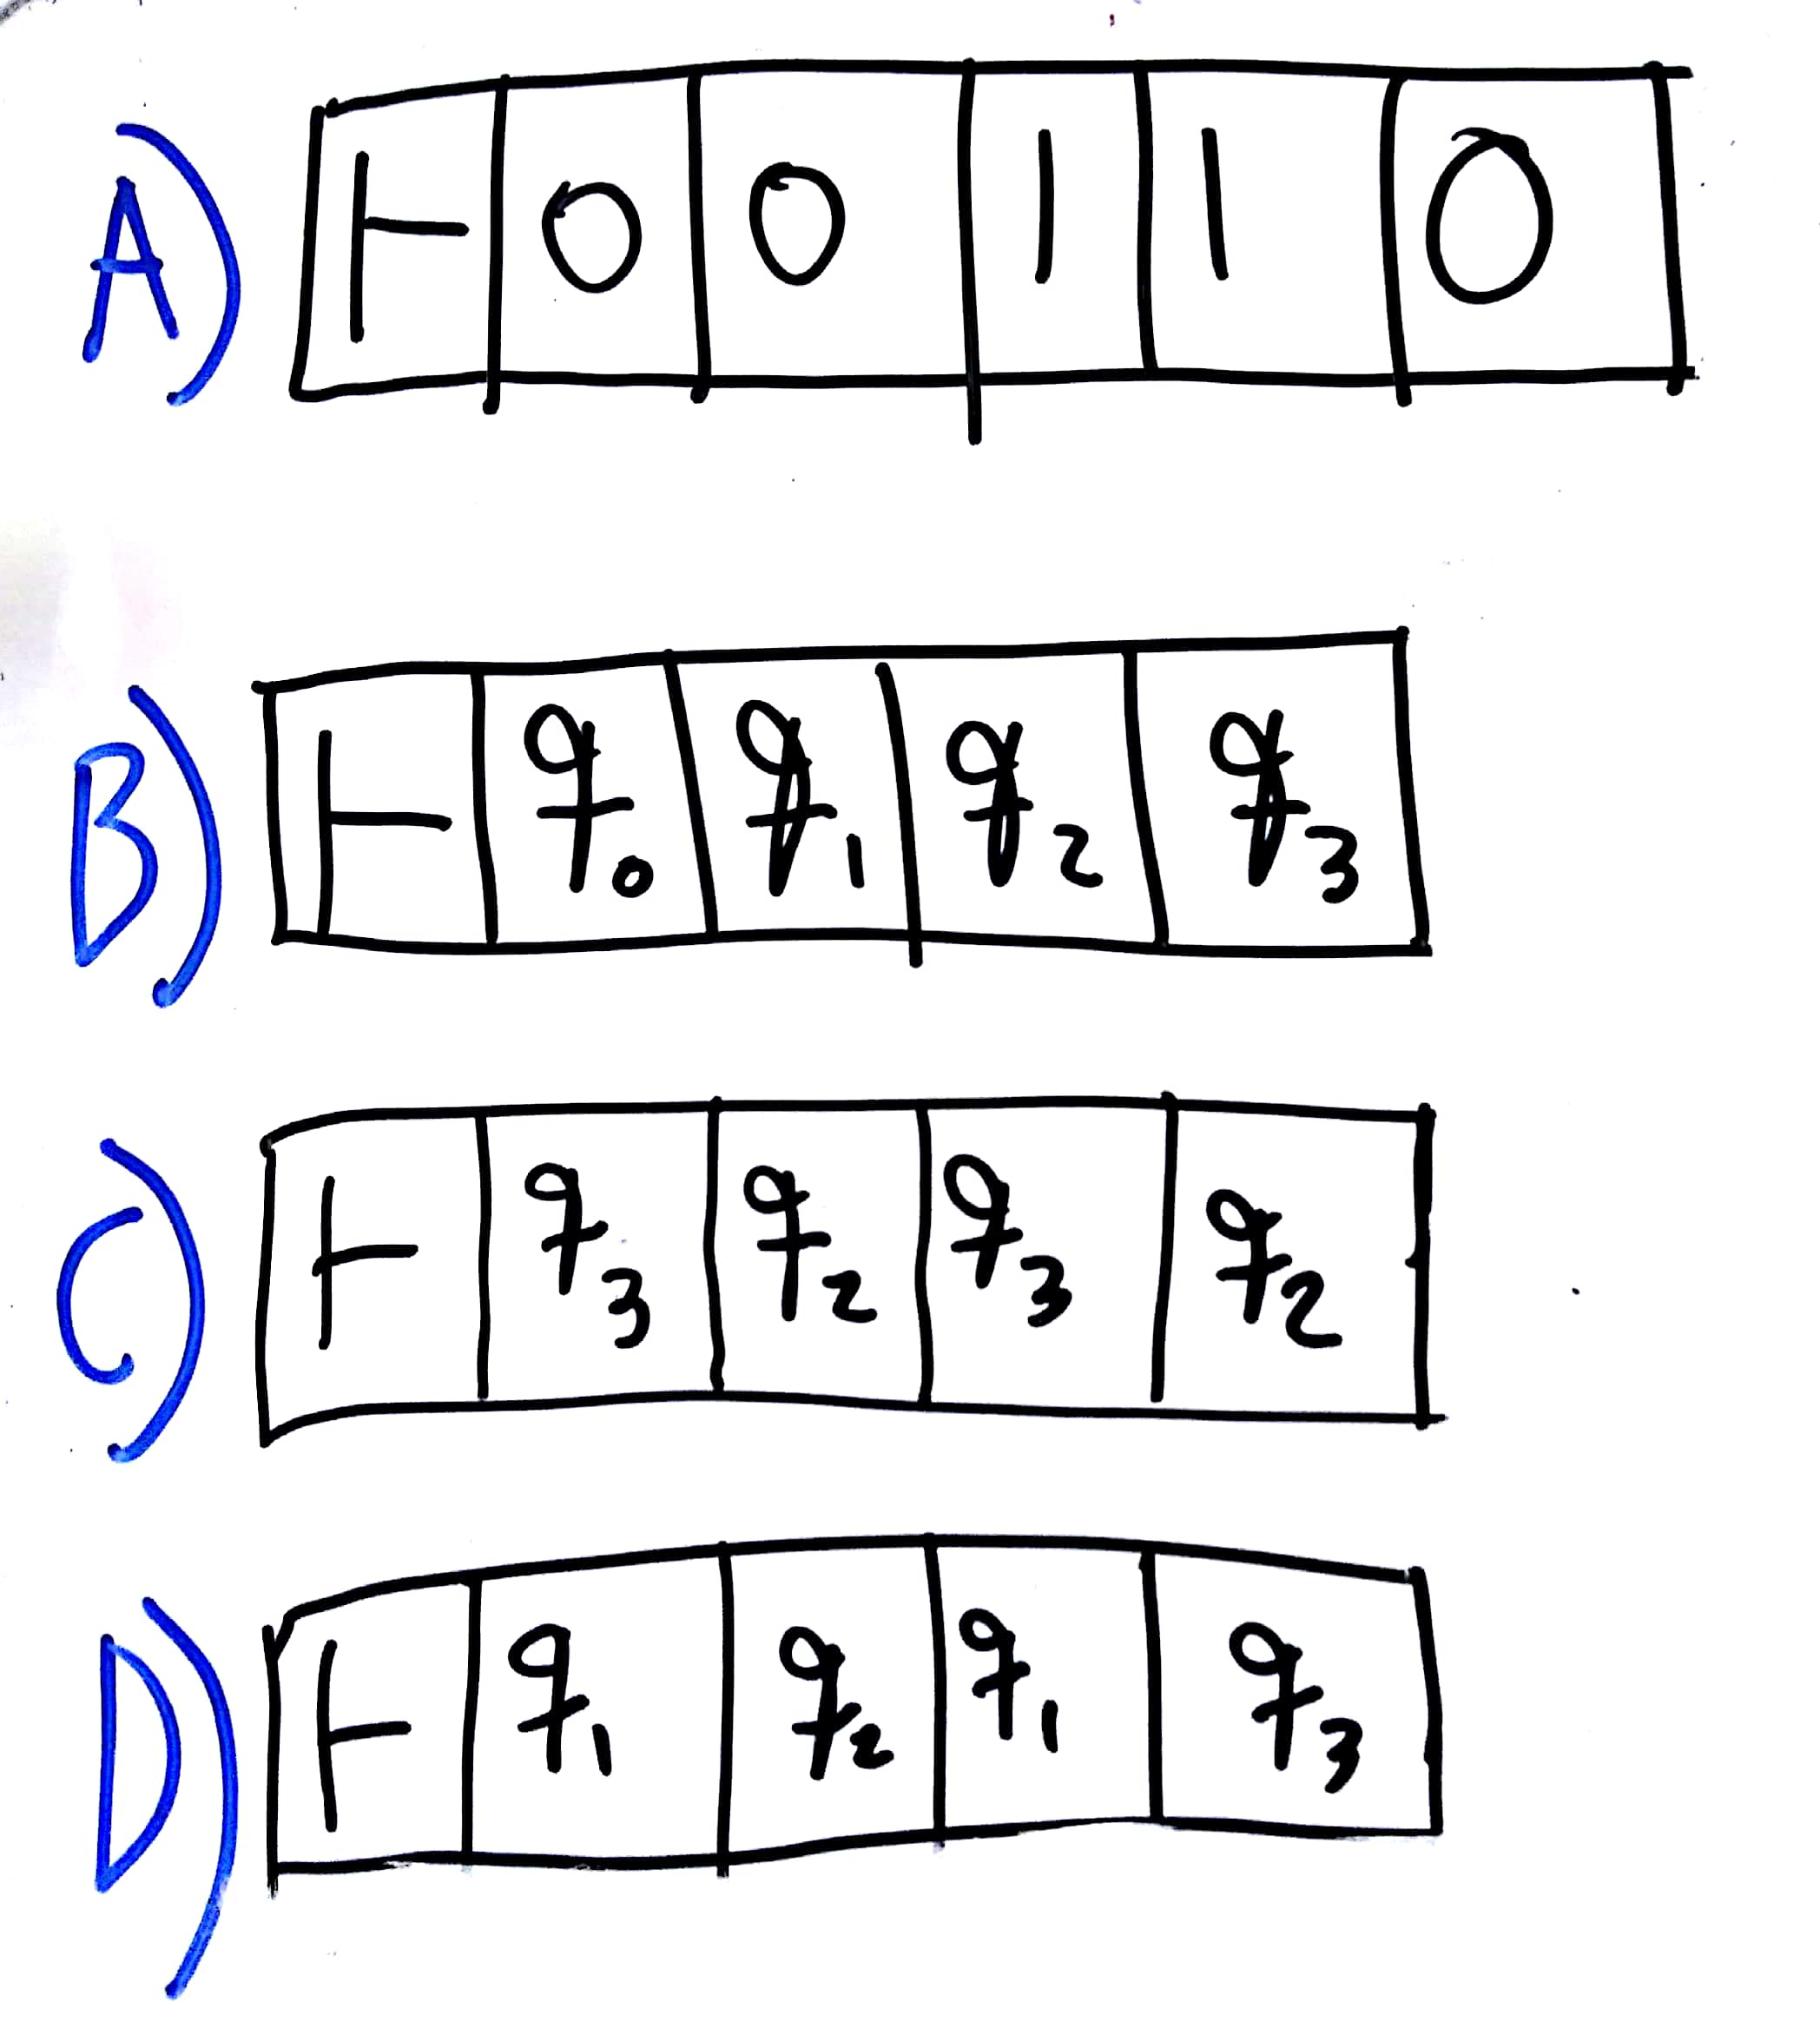 A) ⊢ 0 0 1 1 0
B) ⊢ q₀ q₁ q₂ q₃
C) ⊢ q₃ q₂ q₃ q₂
D) ⊢ q₁ q₂ q₁ q₃